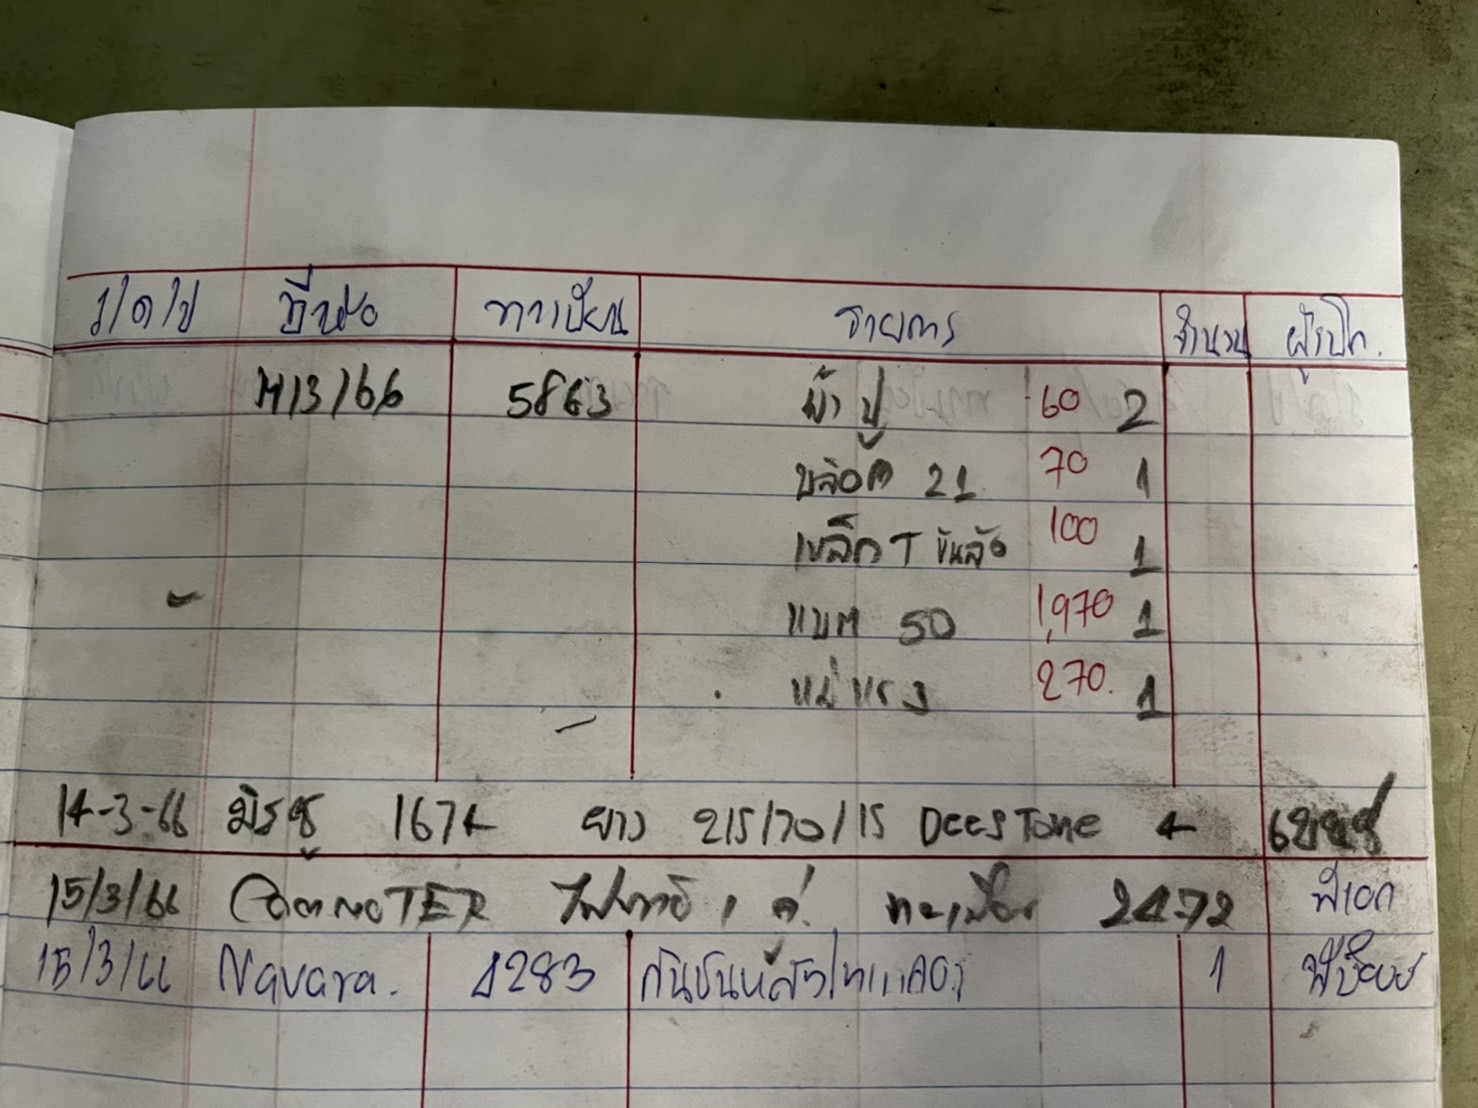 ว/ด/ป ยี่ห้อ ทะเบียน รายการ จำนวน ผู้เบิก.
M13/66 5863 ผ้า ปู 60 2
บล๊อค 21 70 1
เหล็ก T ขันล้อ 100 1
แบต 50 1,970 1
แม่แรง 270. 1
14-3-66 มิรซู 1674 ยาง 215/70/15 Deestone 4
15/3/66 ไฟ 1 ทะเบียน 2472 พี่เอก
15/3/66 Navara. 1283 กันชนหลัง 1